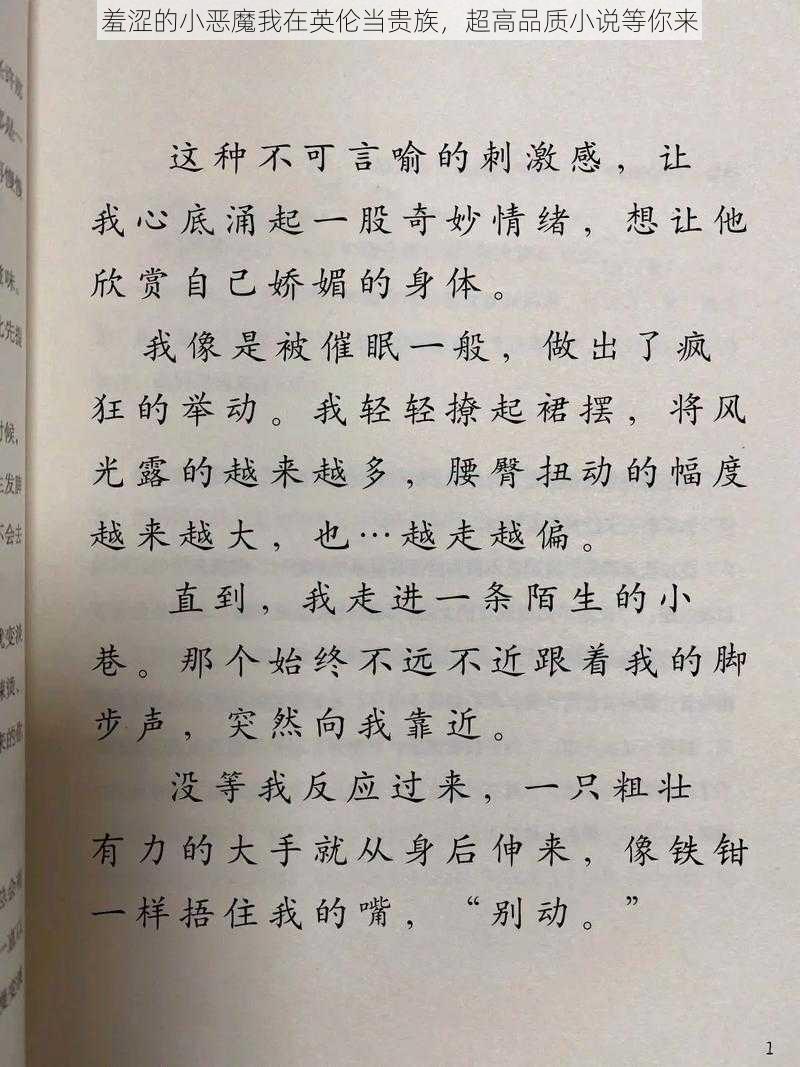 羞涩的小恶魔我在英伦当贵族，超高品质小说等你来
这种不可言喻的刺激感，让
我心底涌起一股奇妙情绪，想让他
欣赏自己娇媚的身体。
我像是被催眠一般，做出了疯
狂的举动。我轻轻撩起裙摆，将风
光露的越来越多，腰臀扭动的幅度
越来越大，也…越走越偏。
直到，我走进一条陌生的小
巷。那个始终不远不近跟着我的脚
步声，突然向我靠近。
没等我反应过来，一只粗壮
有力的大手就从身后伸来，像铁钳
一样捂住我的嘴，“别动。”
1